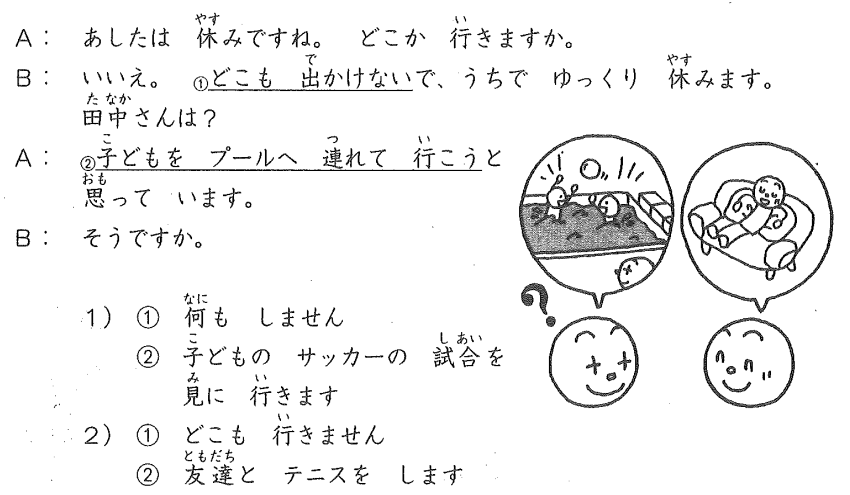 A： あしたは 休みですね。 どこか 行きますか。
B： いいえ。 ①どこも 出かけないで、うちで ゆっくり 休みます。
田中さんは？
A： ②子どもを プールへ 連れて 行こうと
思って います。
B： そうですか。
1） ① 何も しません
② 子どもの サッカーの 試合を
見に 行きます
2） ① どこも 行きません
② 友達と テニスを します